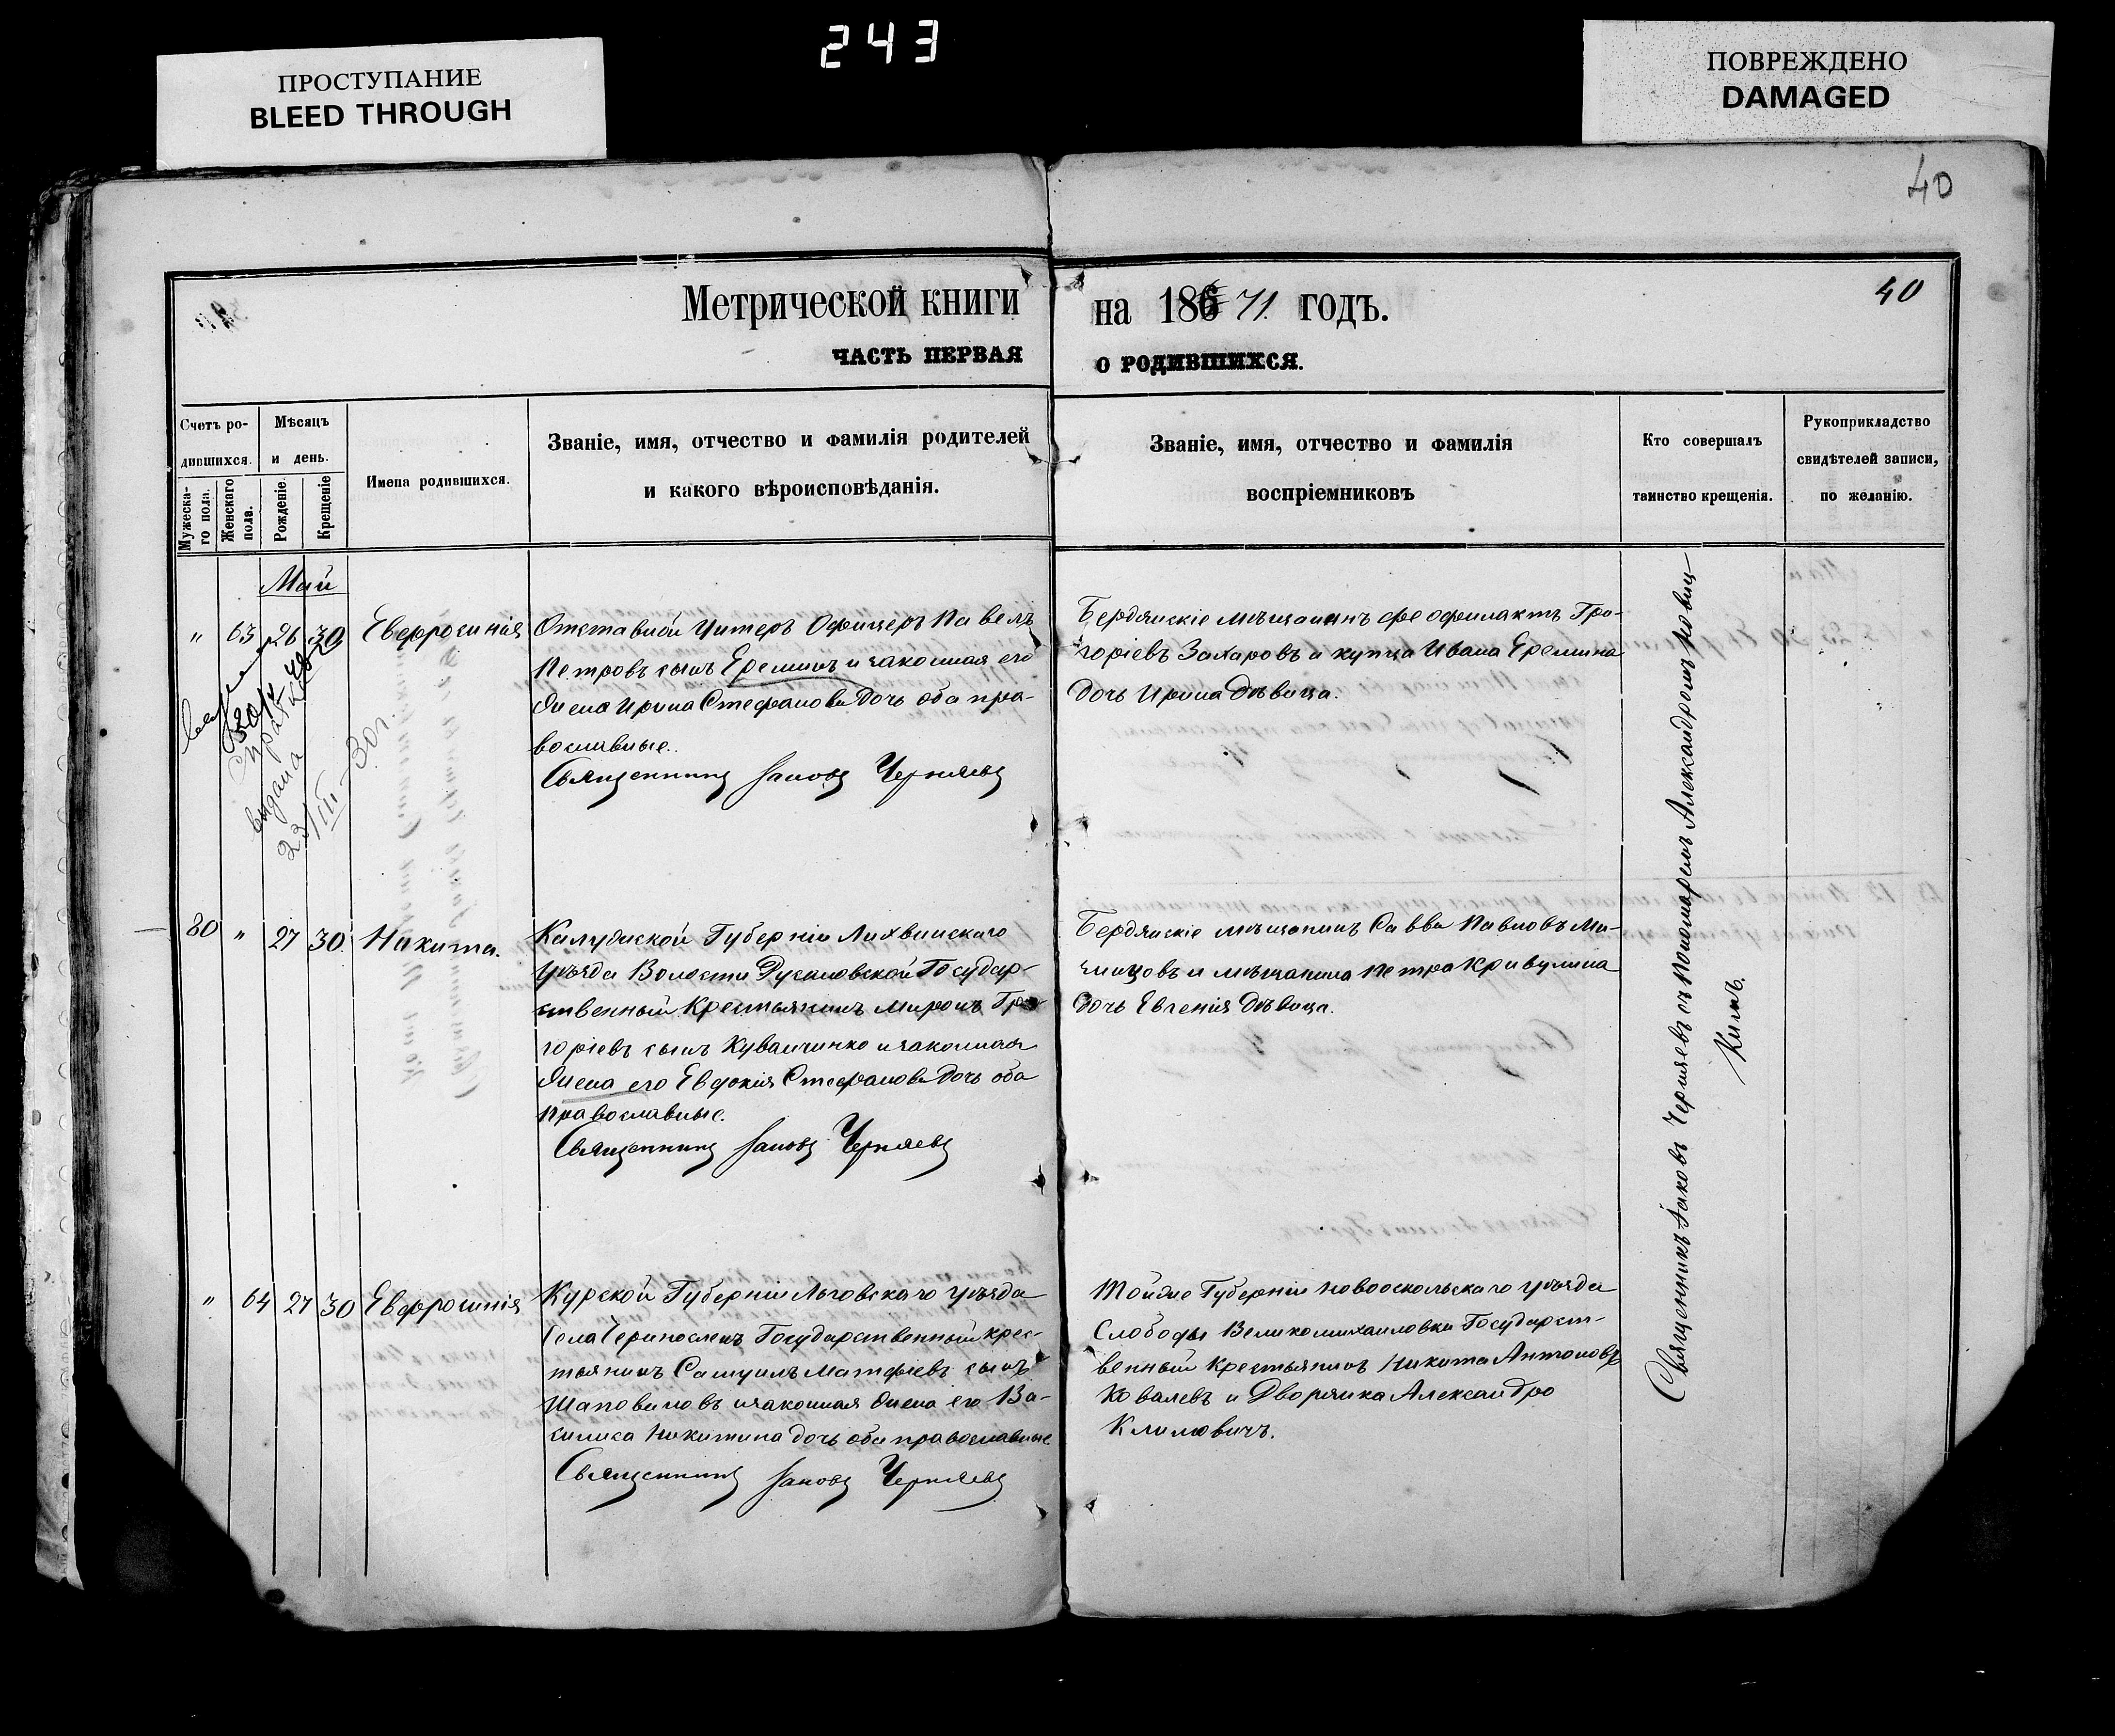 243
ПРОСТУПАНИЕ
BLEED THROUGH
ПОВРЕЖДЕНО
DAMAGED
40
40
Метрической книги на 186 71 годъ.
ЧАСТЬ ПЕРВАЯ О РОДИВШИХСЯ.
Счетъ ро-
дившихся.
Мужеска-
го пола.
Женскаго
пола.
Мѣсяцъ
и день.
Рожденіе.
Крещеніе
Имена родившихся.
Званіе, имя, отчество и фамилія родителей
и какого вѣроисповѣданія.
Званіе, имя, отчество и фамилія
воспріемниковъ
Кто совершалъ
таинство крещенія.
Рукоприкладство
свидѣтелей записи,
по желанію.
Май
" 63 26 30 Евфросинія
Отставной Унтеръ Офицеръ Павелъ
Петровъ сынъ Ереминъ и законная его
жена Ирина Стефанова дочь оба пра-
вославные.
Священникъ Іаковъ Черняевъ
Бердянскіе мѣщанинъ Феофилактъ Гри-
горіевъ Захаровъ и купца Ивана Еремина
дочь Ирина дѣвица.
выдана
23/III 30 г.
80 " 27 30 Никита.
Калужской Губерніи Лихвинскаго
уѣзда Волости Государ-
ственный Крестьянинъ Миронъ Гри-
горіевъ сынъ и законная
жена его Евдокія Стефанова дочь оба
православные.
Священникъ Іаковъ Черняевъ
Бердянскіе мѣщанинъ Савва Павловъ
и мѣщанина Петра Кривулина
дочь Евгенія дѣвица.
" 64 27 30 Евфросинія
Курской Губерніи Льговскаго уѣзда
Села Государственный крес-
тьянинъ Самуилъ Матфѣевъ сынъ
Шаповаловъ и законная жена его Ва-
силиса Никитина дочь оба православные
Священникъ Іаковъ Черняевъ
Тойже Губерніи Новооскольскаго уѣзда
Слободы Великомихаиловки Государст-
венный крестьянинъ Никита Антоновъ
Ковалевъ и Дворянка Александра
Климовичъ.
Священникъ Іаковъ Черняевъ съ Пономаремъ Александромъ